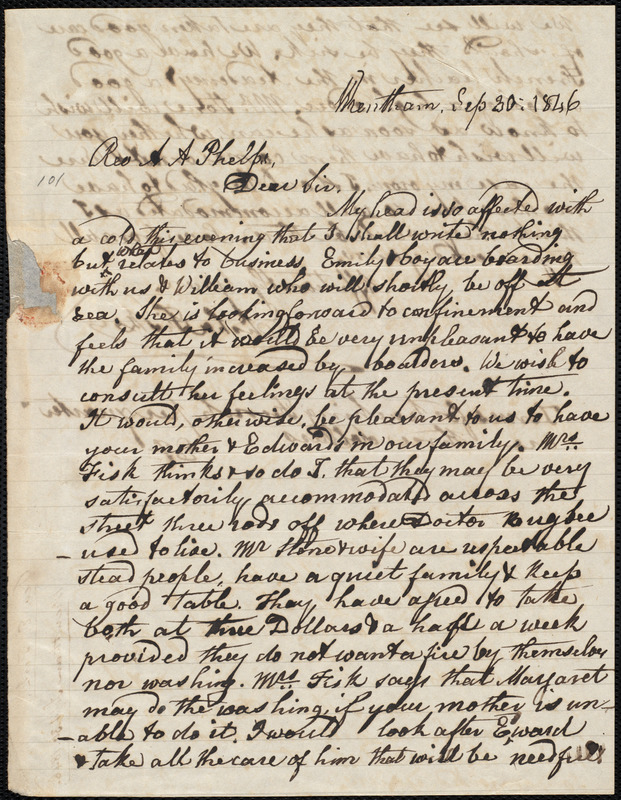 Wrentham, Sep 20: 1846
Rev A A Phelps,
101
Dear Sir.
My head is so affected with
a cold this evening that I shall write nothing
but what relates to business. Emily & boy are boarding
with us & William who will shortly be off at
sea. She is looking forward to confinement and
feels that it would be very unpleasant to have
the family increased by boarders. We wish to
consult her feelings at the present time.
It would, otherwise, be pleasant to us to have
your mother & Edwards in our family. Mrs
Fisk thinks & so do I. that they may be very
satisfactorily accommodated across the
street three rods off where Doctor Bugbee
used to live. Mr Stone & wife are respectable
stead people, have a quiet family & keep
a good table. They have agreed to take
both at three Dollars & a half a week
provided they do not want a fire by themselves
nor washing. Mrs Fisk says that Margaret
may do the washing, if your mother is un-
able to do it. I would look after Edward
& take all the care of him that will be needful